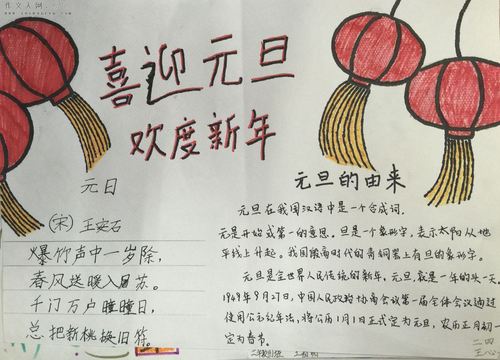 作文人网
喜迎元旦
欢度新年
元日
(宋) 王安石
爆竹声中一岁除,
春风送暖入屠苏。
千门万户曈曈日,
总把新桃换旧符。
元旦的由来
元旦在我国汉语中是一个合成词.
元是开始或第一的意思.旦是一个象形字,表示太阳从地
平线上升起。我国殷商时代的青铜器上有旦的象形字。
元旦是全世界人民传统的新年,元旦,就是一年的头一天.
1949年9月27日,中国人民政治协商会议第一届全体会议通过
使用公元纪年法,将公历1月1日正式定为元旦,农历正月初一
定为春节。
二四
王心